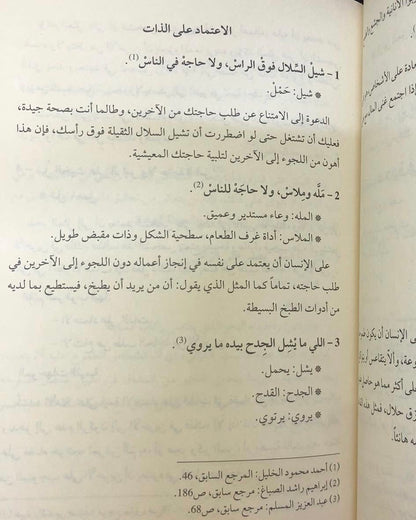 الاعتماد على الذات
1 - شيلُ السِّلال فوقَ الراسْ، ولا حاجةْ في الناسْ(1).
* شيل: حَمْلُ.
الدعوة إلى الامتناع عن طلب حاجتك من الآخرين، وطالما أنت بصحة جيدة،
فعليك أن تشتغل حتى لو اضطررت أن تشيل السلال الثقيلة فوق رأسك، فإن هذا
أهون من اللجوء إلى الآخرين لتلبية حاجتك المعيشية.
2 - مَلَّه ومِلاسْ، ولا حاجَهْ للناسْ(2).
* المله: وعاء مستدير وعميق.
* الملاس: أداة غرف الطعام، سطحية الشكل وذات مقبض طويل.
على الإنسان أن يعتمد على نفسه في إنجاز أعماله دون اللجوء إلى الآخرين في
طلب حاجته، تماماً كما المثل الذي يقول: أن من يريد أن يطبخ، فيستطيع بما لديه
من أدوات الطبخ البسيطة.
3 - اللي ما يْشِل الجِدح بيده ما يروي(3).
* يشل: يحمل.
* الجدح: القدح.
* يروي: يرتوي.
(1) أحمد محمود الخليل: المرجع السابق، 46.
(2) إبراهيم راشد الصباغ: مرجع سابق، ص186.
(3) عبد العزيز المسلم: مرجع سابق، ص68.